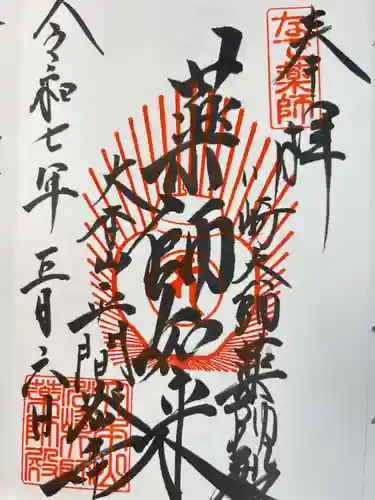 奉拝
なで薬師
川崎大師薬師殿
薬師如来
大本山平間寺
令和七年三月六日